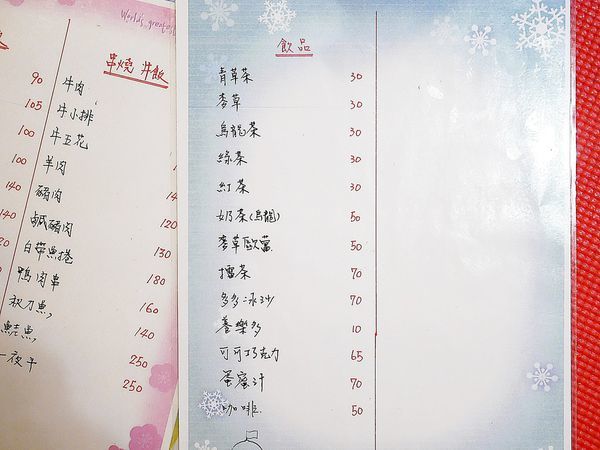 World's greatest
串燒 丼飯
90 牛肉
105 牛小排
100 牛五花
100 羊肉
140 豬肉
140 鹹豬肉 120
20 白帶魚捲 130
鴨肉串 180
秋刀魚 160
鮭魚 140
一夜干 250
250
飲品
青草茶 30
麥草 30
烏龍茶 30
綠茶 30
紅茶 30
奶茶(烏龍) 50
麥草歐蕾 50
擂茶 70
多多冰沙 70
養樂多 10
可可巧克力 65
蛋蜜汁 70
咖啡 50